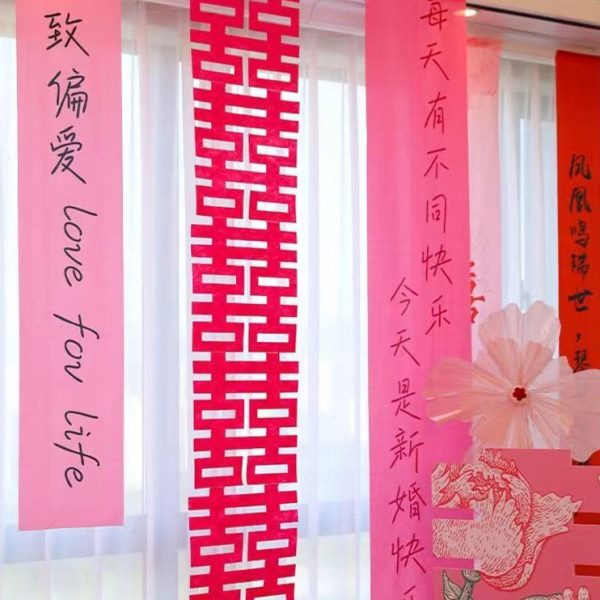 致偏爱 Love for Life
囍囍囍囍囍囍囍囍
每天有不同快乐
今天是新婚快乐
凤凰鸣瑞世，琴